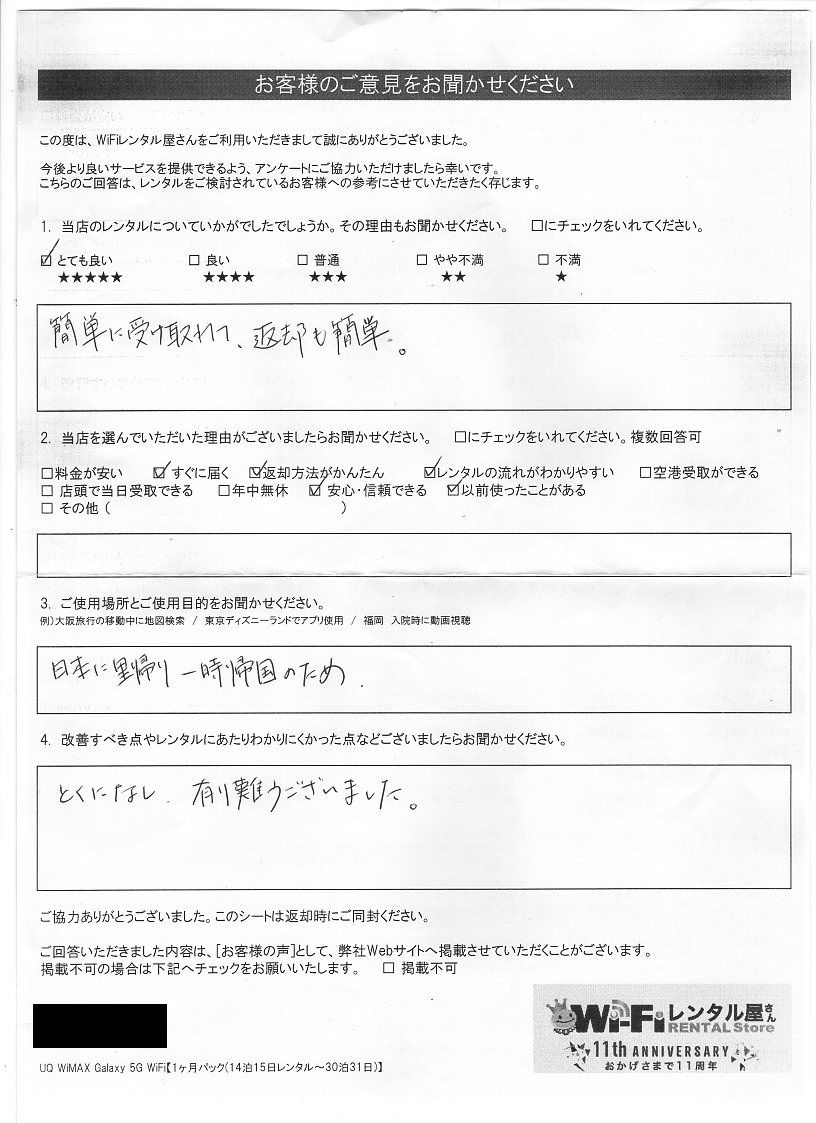 お客様のご意見をお聞かせください
この度は、WiFiレンタル屋さんをご利用いただきまして誠にありがとうございました。
今後より良いサービスを提供できるよう、アンケートにご協力いただけましたら幸いです。
こちらのご回答は、レンタルをご検討されているお客様への参考にさせていただきたく存じます。
1. 当店のレンタルについていかがでしたでしょうか。その理由もお聞かせください。 □にチェックをいれてください。
☑ とても良い □ 良い □ 普通 □ やや不満 □ 不満
★★★★★ ★★★★ ★★★ ★★ ★
簡単に受け取れて、返却も簡単。
2. 当店を選んでいただいた理由がございましたらお聞かせください。 □にチェックをいれてください。複数回答可
□料金が安い ☑すぐに届く ☑返却方法がかんたん ☑レンタルの流れがわかりやすい □空港受取ができる
□ 店頭で当日受取できる □年中無休 ☑ 安心・信頼できる ☑以前使ったことがある
□ その他 ( )
3. ご使用場所とご使用目的をお聞かせください。
例)大阪旅行の移動中に地図検索 / 東京ディズニーランドでアプリ使用 / 福岡 入院時に動画視聴
日本に里帰り 一時帰国のため.
4. 改善すべき点やレンタルにあたりわかりにくかった点などございましたらお聞かせください。
とくになし. 有り難うございました。
ご協力ありがとうございました。このシートは返却時にご同封ください。
ご回答いただきました内容は、[お客様の声]として、弊社Webサイトへ掲載させていただくことがございます。
掲載不可の場合は下記へチェックをお願いいたします。 □ 掲載不可
Wi-Fiレンタル屋さん
RENTAL Store
11th ANNIVERSARY
おかげさまで11周年
UQ WiMAX Galaxy 5G WiFi【1ヶ月パック(14泊15日レンタル～30泊31日)】